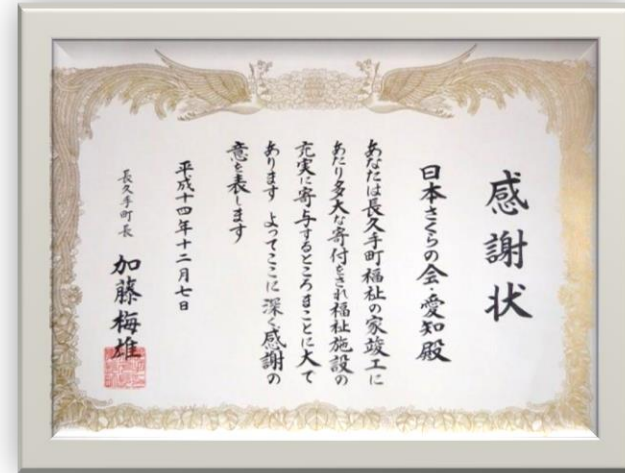 感謝状
日本さくらの会・愛知殿
あなたは長久手町福祉の家竣工に
あたり多大な寄付をされ福祉施設の
充実に寄与するところまことに大で
あります よってここに深く感謝の
意を表します
平成十四年十二月七日
長久手町長 加藤梅雄